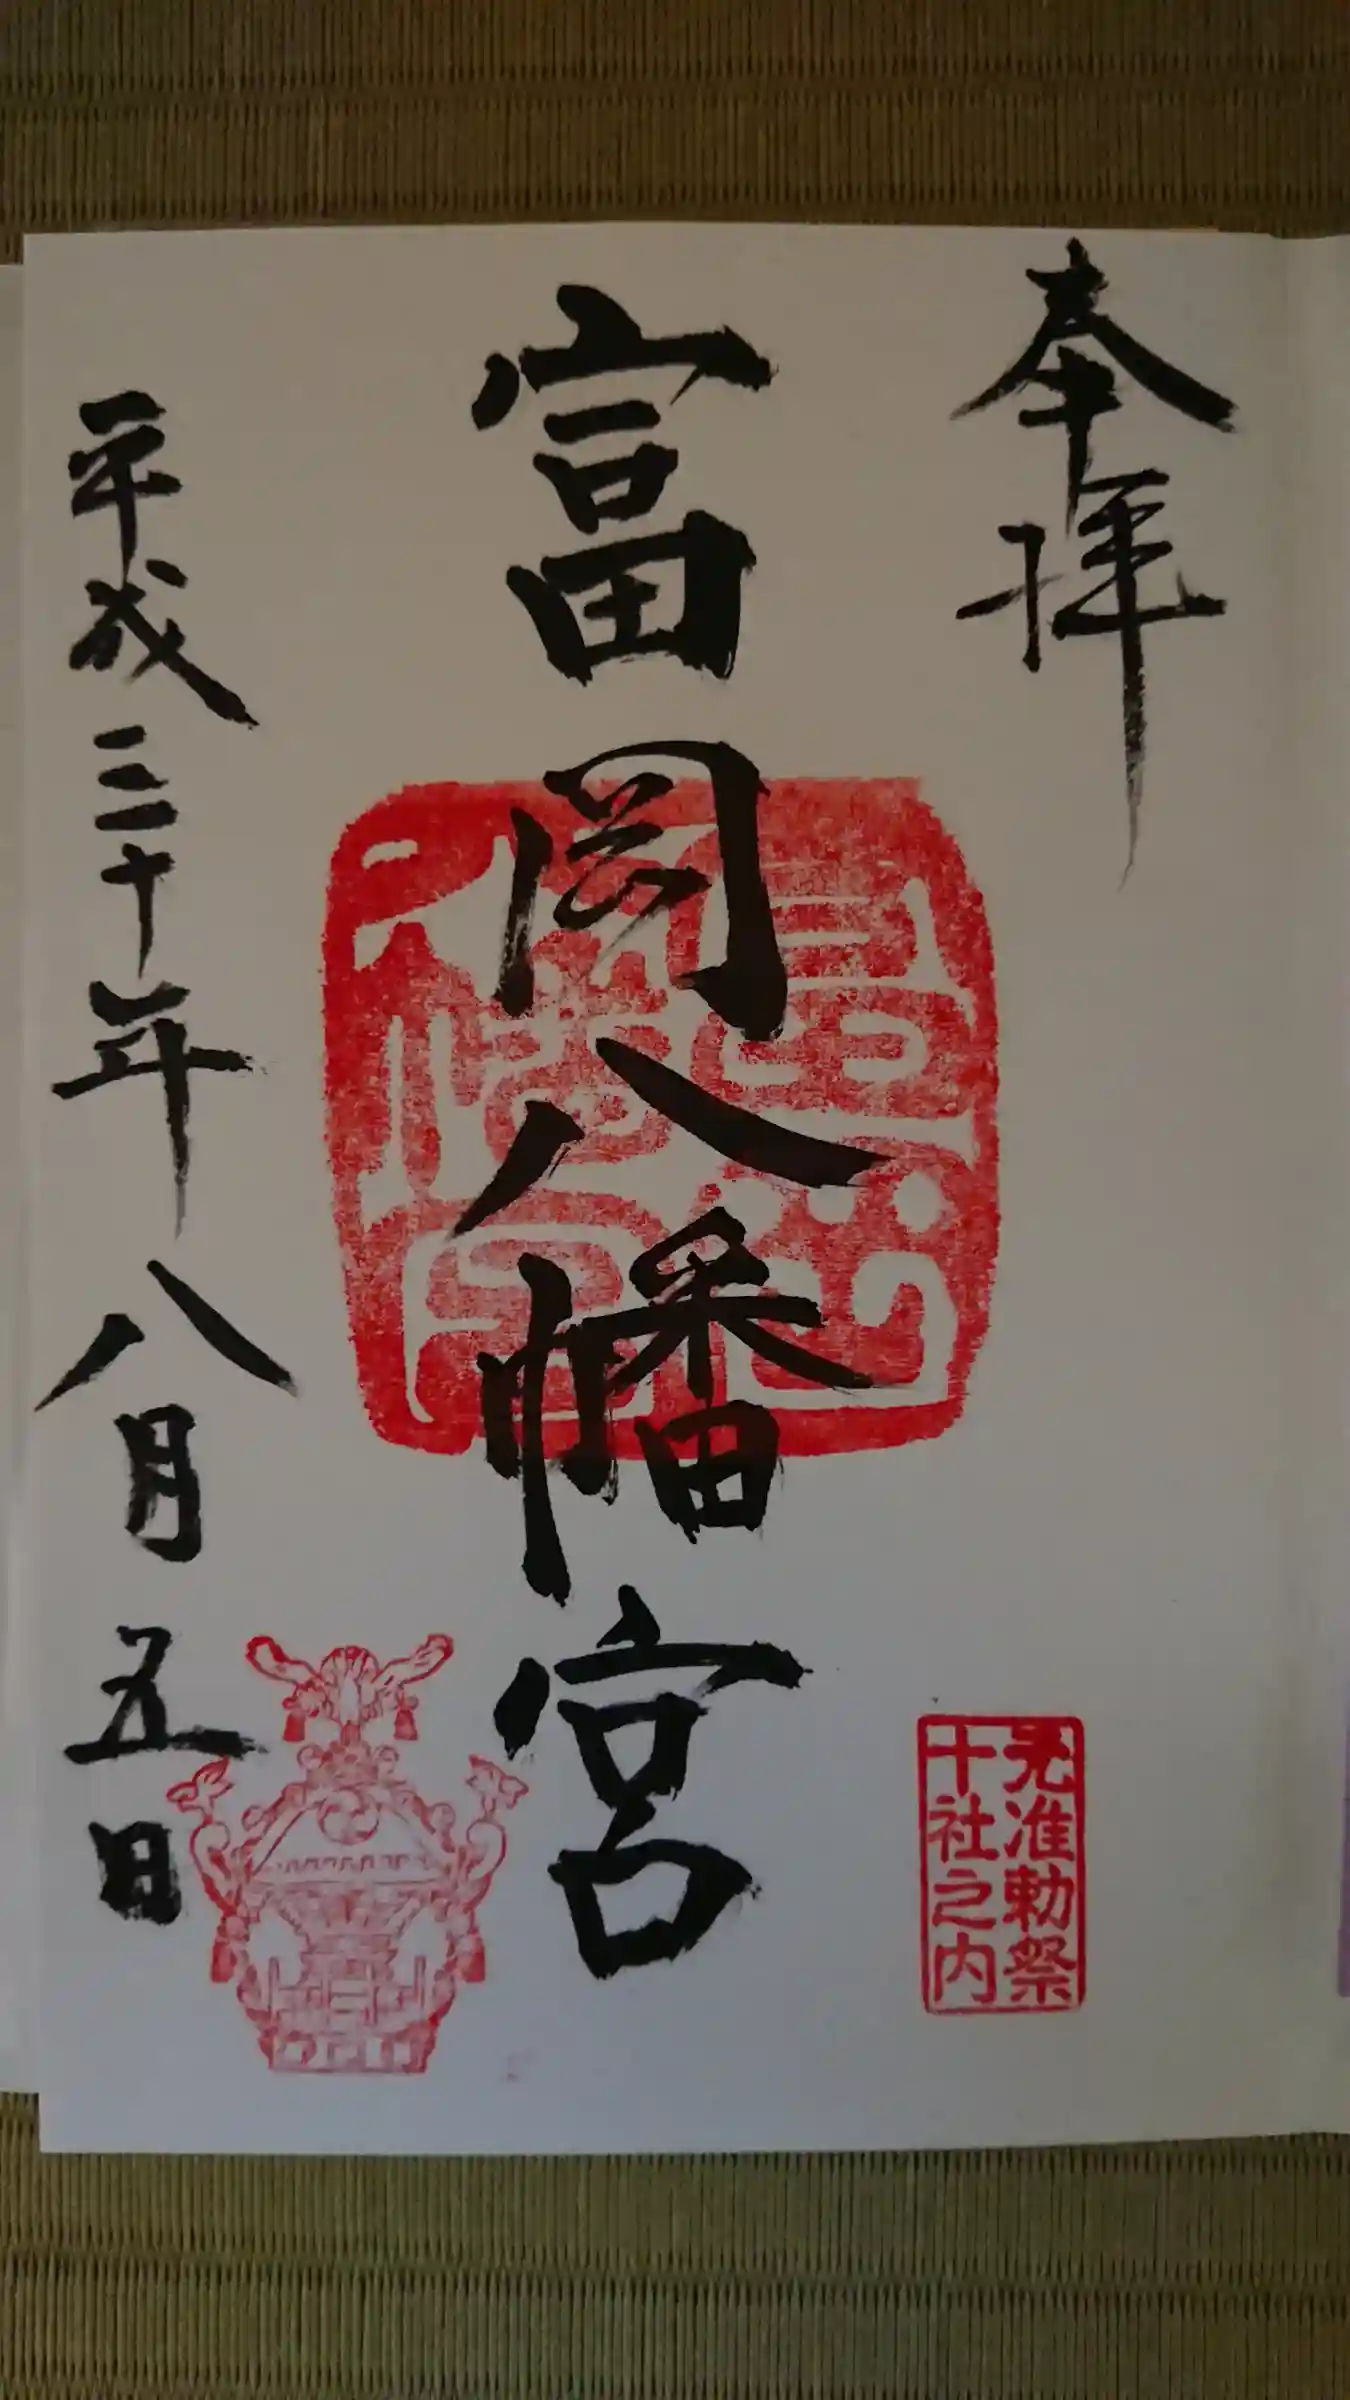 奉拝
元准勅祭
十社之内
富岡八幡宮
平成三十年八月五日